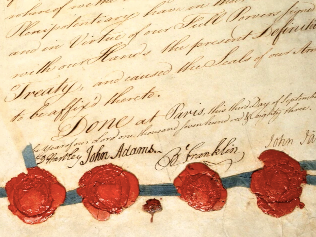 nature of me
Plenipotentiary have in their
and in Virtue of our Full Powers, Signed
with our Hands the present Definitive
Treaty, and caused the Seals of our Arms
to be affix'd thereto.
Done at Paris, this third Day of September
In the Year of our Lord one thousand, seven hundred & eighty three.
D Hartley John Adams. B Franklin John Ja